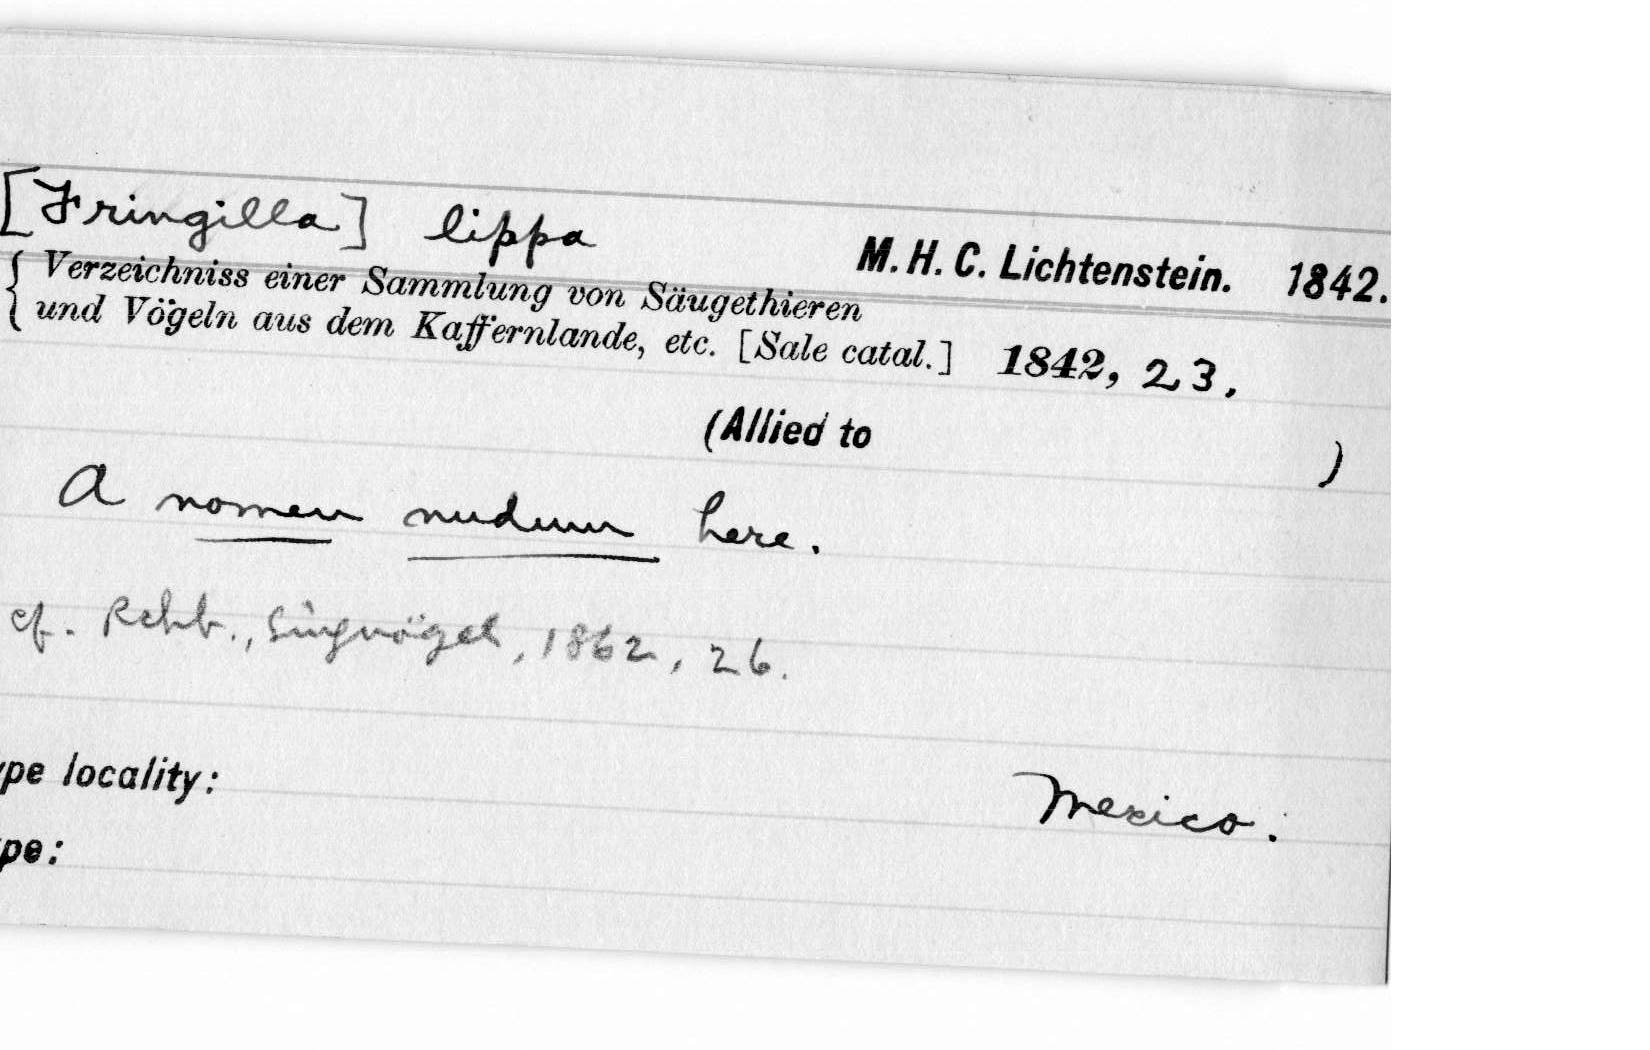 [Fringilla] lippa
M. H. C. Lichtenstein. 1842.
{ Verzeichniss einer Sammlung von Säugethieren
und Vögeln aus dem Kaffernlande, etc. [Sale catal.] 1842, 23.
(Allied to )
A nomen nudum here.
cf. Rchb., Singvögel, 1862, 26.
ype locality: Mexico.
ype: